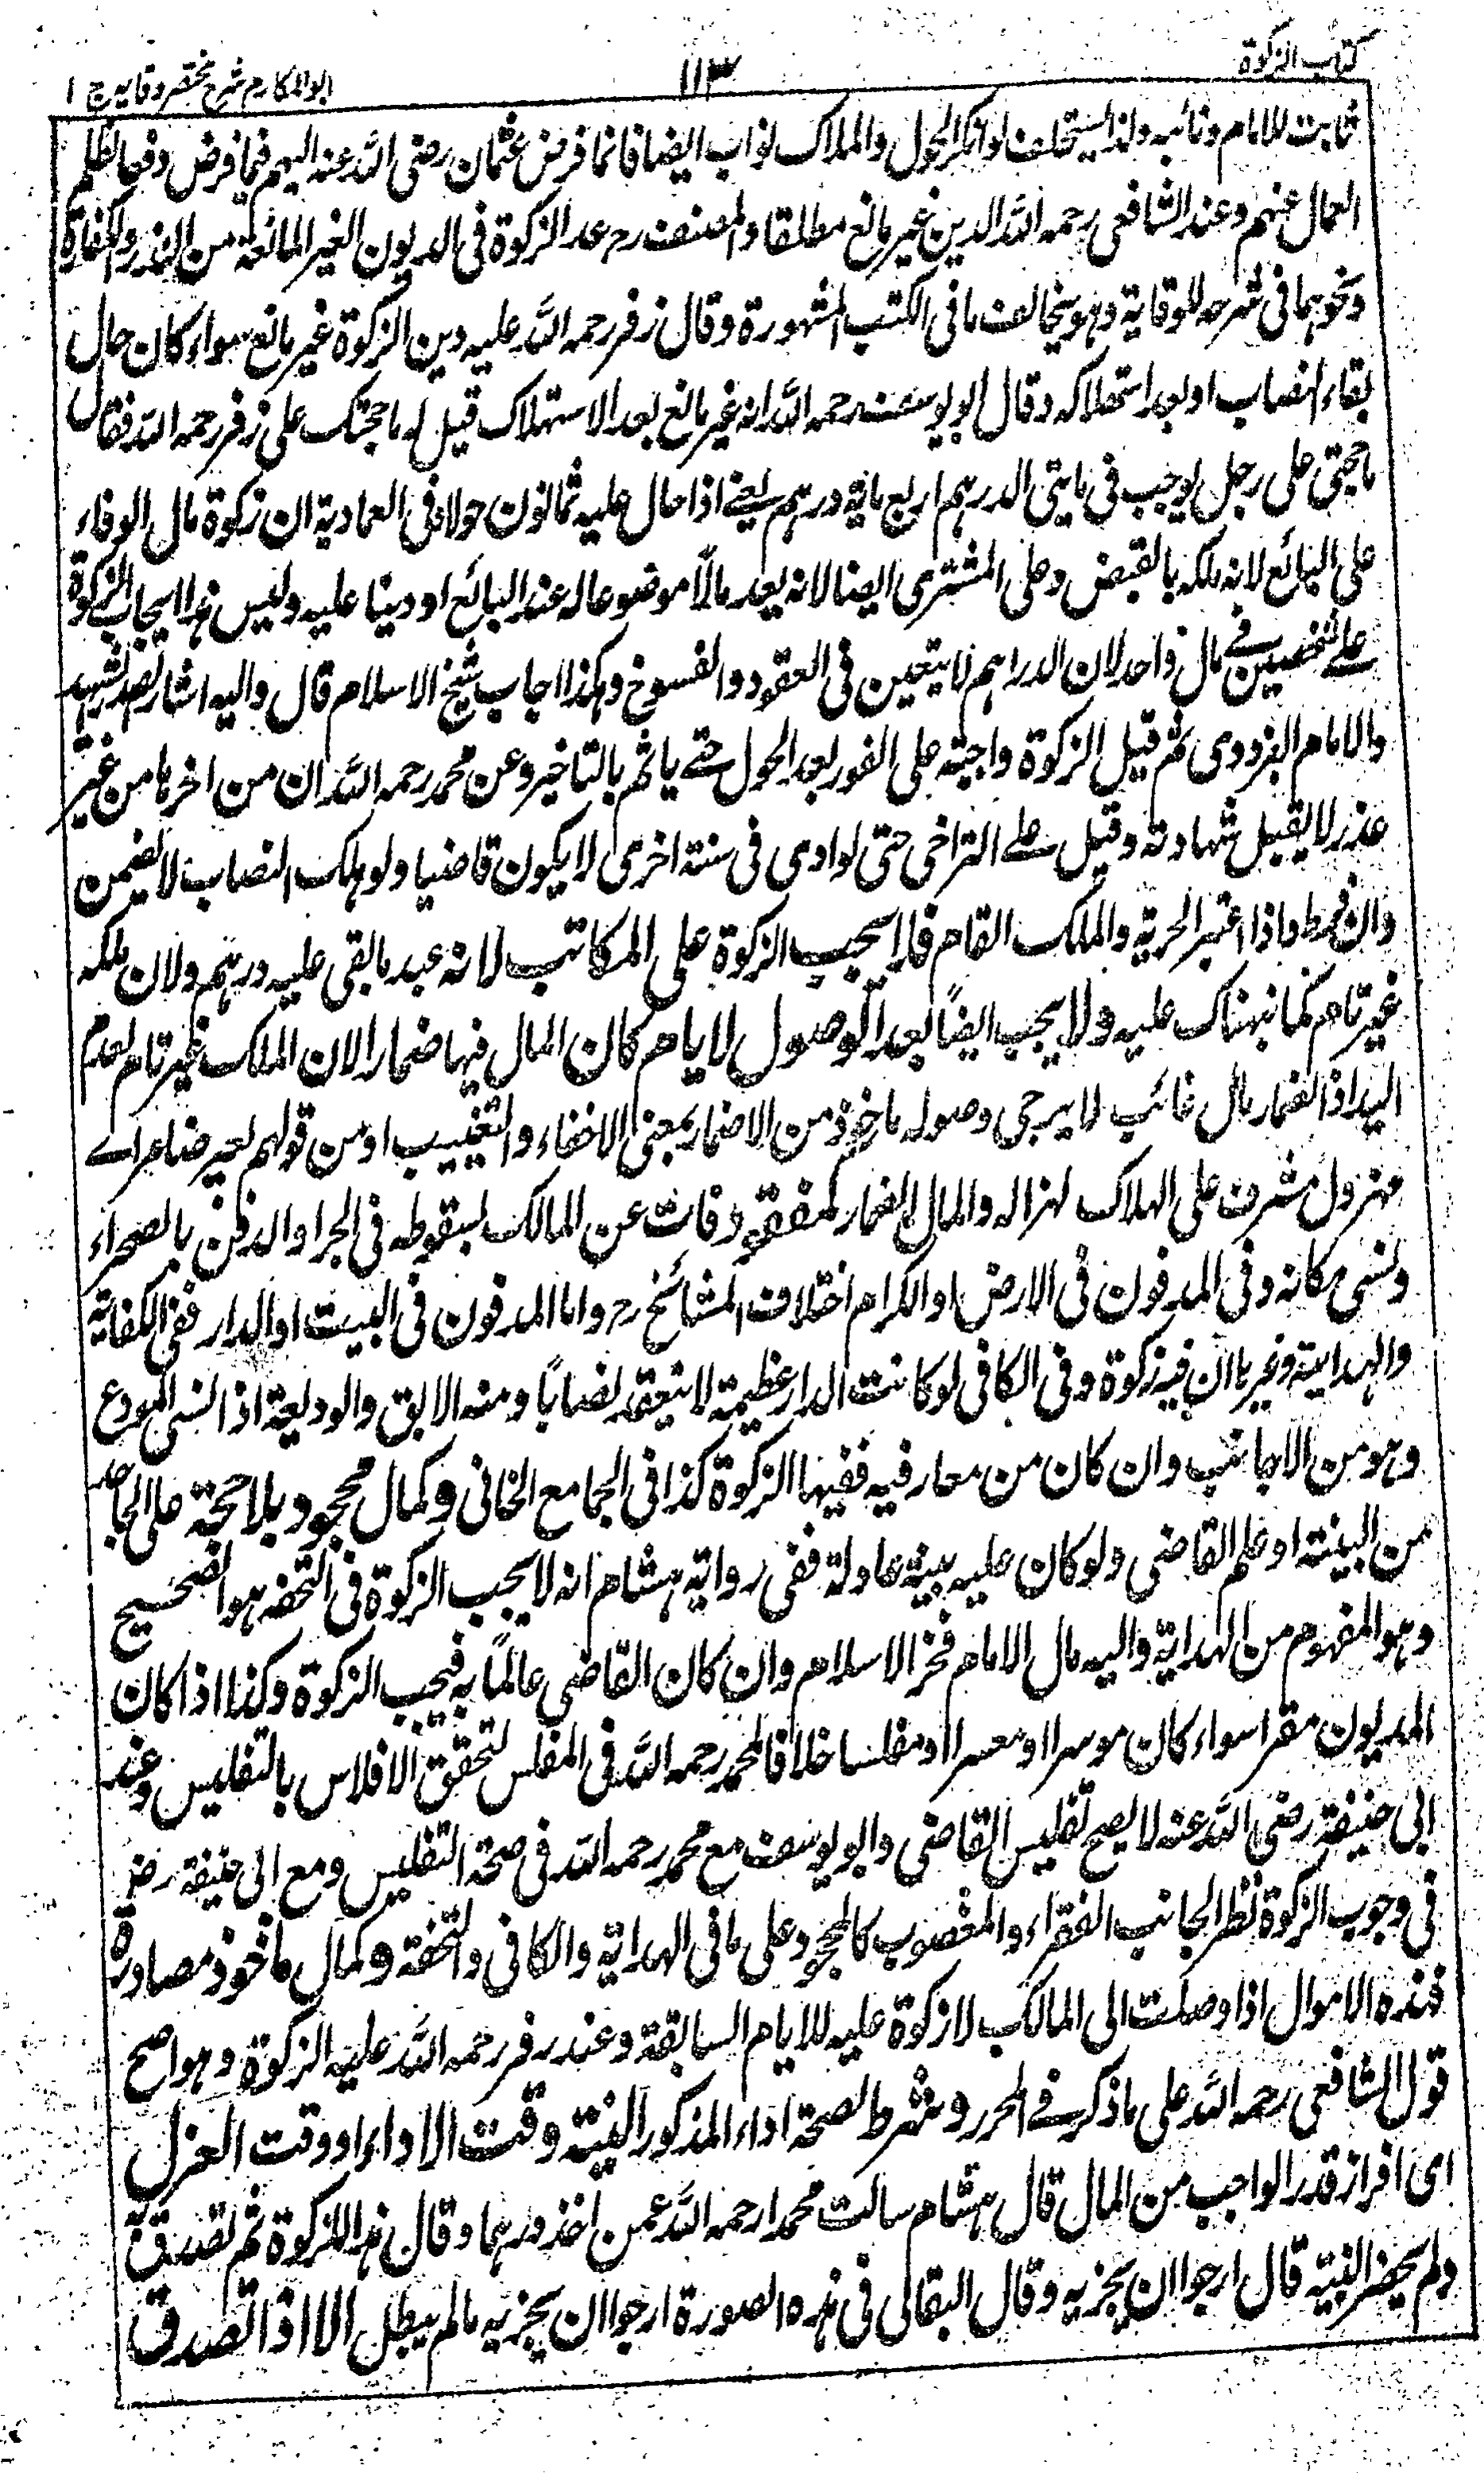 كتاب الزكوة
١١٣
ابو المكارم شرح مختصر وقايه ج ١
ثابت للامام ونائبه ولذا يستحلف لو انكر الحول والملاك نواب ايضا فانما فرض عثمان رضى الله عنه اليهم فيما فرض دفعا لظلم
العمال عنهم وعند الشافعى رحمه الله الدين غير مانع مطلقا والمصنف رح عد الزكوة فى الديون الغير المانعة من النذر والكفارة
ونحوهما فى شرحه للوقاية وهو يخالف ما فى الكتب المشهورة وقال زفر رحمه الله عليه دين الزكوة غير مانع سواء كان حال
بقاء النصاب او بعد استهلاكه وقال ابو يوسف رحمه الله انه غير مانع بعد الاستهلاك قيل له ما حجتك على زفر رحمه الله فقال
ما حجتى على رجل يوجب فى مايتى الدرهم اربع ماية درهم يعنے اذا حال عليه ثمانون حولا وفى العمادية ان زكوة مال الوفاء
على البائع لانه ملكه بالقبض وعلى المشترى ايضا لانه يعد مالًا موضوعا له عند البائع او دينا عليه وليس هذا ايجاب الزكوة
علے شخصين فے مال واحد لان الدراهم لا يتعين فى العقود والفسوخ وهكذا اجاب شيخ الاسلام قال واليه اشار الصدر الشهيد
والامام البزدوى ثم قيل الزكوة واجبة على الفور بعد الحول حتے ياثم بالتاخير وعن محمد رحمه الله ان من اخرها من غير
عذر لا يقبل شهادته وقيل علے التراخى حتى لو ادى فى سنة اخرى لا يكون قاضيا ولو هلك النصاب لا يضمن
وان فرط واذا اعتبر الحرية والملك التام فلا يجب الزكوة على المكاتب لانه عبد ما بقى عليه درهم ولان ملكه
غير تام كما نبهناك عليه ولا يجب ايضًا بعد الوصول لايام كان المال فيها ضمارا لان الملك غير تام لعدم
اليد اذ الضمار مال غائب لا يرجى وصوله ماخوذ من الاضمار بمعنى الاخفاء والتغييب او من قولهم بعير ضامر اے
مهزول مشرف على الهلاك لهزاله والمال الضمار كمفقود فات عن المالك لسقوطه فى البحر او الدفن بالصحراء
ونسى مكانه وفى المدفون فى الارض او الكرام اختلاف المشائخ رح واما المدفون فى البيت او الدار ففى الكفاية
والهداية وغيرها ان فيه زكوة وفى الكافى لو كانت الدار عظيمة لا ينعقد نصابًا ومنه الابق والوديعة اذا نسى المودع
وهو من الاجانب وان كان من معارفيه ففيها الزكوة كذا فى الجامع الخانى وكمال مجحود بلا حجة على الجاحد
من البينة او علم القاضى ولو كان عليه بينة عادلة ففى رواية هشام انه لا يجب الزكوة فى التحفه هو الصحيح
وهو المفهوم من الهداية واليه مال الامام فخر الاسلام وان كان القاضى عالمًا به فيجب الزكوة وكذا اذا كان
المديون مقرا سواء كان موسرا او معسرا او مفلسا خلافا لمحمد رحمه الله فى المفلس لتحقق الافلاس بالتفليس وعند
ابى حنيفة رضى الله عنه لا يصح تفليس القاضى وابو يوسف مع محمد رحمه الله فى صحة التفليس ومع ابى حنيفة رض
فى وجوب الزكوة نظرا لجانب الفقراء والمغصوب كالمجحود على ما فى الهداية والكافى والتحفة وكمال ماخوذ مصادرة
فهذه الاموال اذا وصلت الى المالك لا زكوة عليه للايام السابقة وعند زفر رحمه الله عليه الزكوة وهو اصح
قول الشافعى رحمه الله على ما ذكر فے المحرر وشرط لصحة اداء المذكور النية وقت الاداء او وقت العزل
اى افراز قدر الواجب من المال قال هشام سالت محمدا رحمه الله عمن اخذ درهما وقال هذا للزكوة ثم تصدق به
ولم يحضر النية قال ارجو ان يجزيه وقال البقالى فى هذه الصورة ارجو ان يجزيه ما لم يبطل الا اذا تصدق